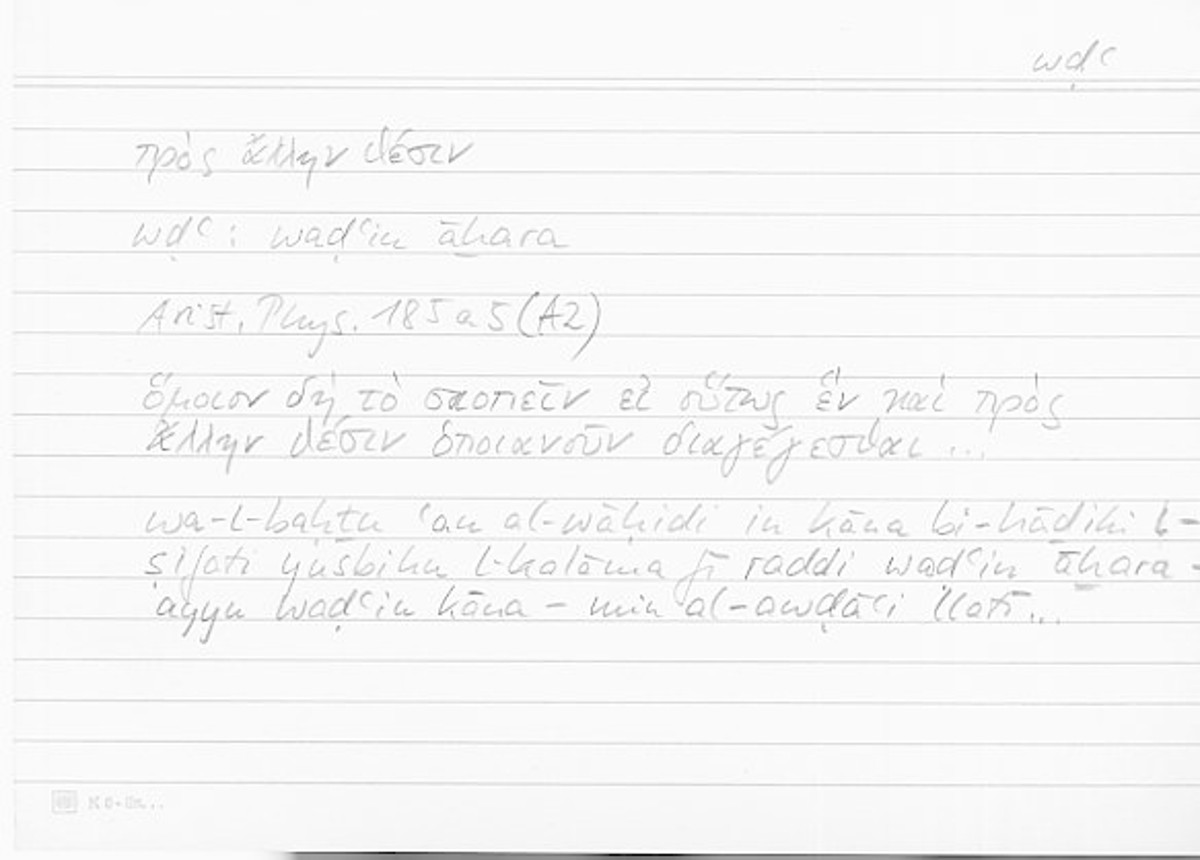 wḍʿ
πρὸς ἄλλην θέσιν
wḍʿ : waḍʿin āḫara
Arist. Phys. 185 a 5 (A2)
ὅμοιον δὴ τὸ σκοπεῖν εἰ οὕτως ἓν καὶ πρὸς
ἄλλην θέσιν ὁποιανοῦν διαλέγεσθαι ...
wa-l-baḥṯu ʿan al-wāḥidi in kāna bi-hāḏihi l-
ṣifati yušbihu l-kalāma fī raddi waḍʿin āḫara -
ayyu waḍʿin kāna - min al-awḍāʿi llatī ...